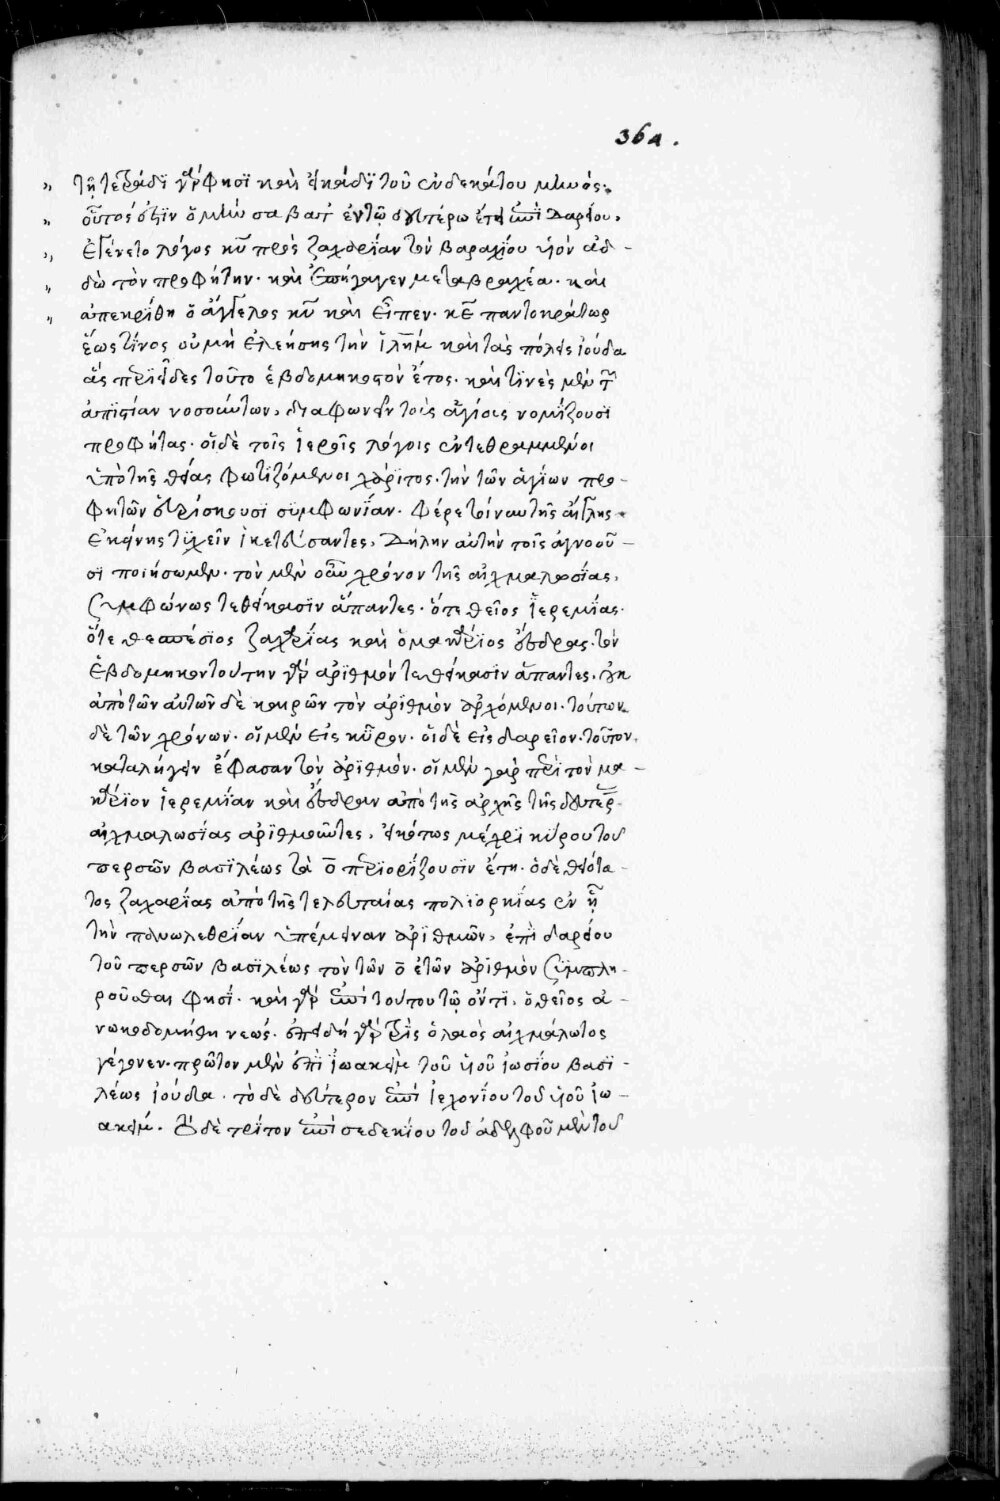 364.
" τῇ τετράδι γάρ φησϊ καὶ εἰκάδϊ τοῦ ἑνδεκάτου μηνός.
" οὗτός ἐστϊν ὁ μὴν σαβατ ἐν τῷ δευτέρω ἔτει ἐπὶ Δαρείου.
" Ἐγένετο λόγος κυ πρὸς ζαχαρίαν τὸν βαραχίου υἱὸν ἀδ-
" δὼ τὸν προφήτην. καὶ ἐπήγαγεν μετα βραχέα. καὶ
" ἀπεκρίθη ὁ ἄγγελος κυ καὶ εἶπεν. κε παντοκράτωρ
ἕως τίνος οὐ μὴ ἐλεήσης τὴν ἰλημ καὶ τὰς πόλεις ἰούδα
ἃς περιεῖδες τοῦτο ἑβδομηκοστὸν ἔτος. καὶ τϊνὲς μὲν
ἀπϊστίαν νοσούντων, διαφωνεῖν τοὺς ἁγίους νομίζουσϊ
προφήτας. οἱ δὲ τοῖς ἱεροῖς λόγοις ἐντεθραμμένοι
ὑπὸ τῆς θείας φωτϊζόμενοι χάριτος. τὴν τῶν ἁγίων προ-
φητῶν εὑρίσκουσϊ συμφωνΐαν. φέρε τοίνυν τῆς αἴγλης
ἐκείνης τυχεῖν ἱκετεύσαντες, Δήλην αὐτὴν τοῖς ἀγνοοῦ-
σϊ ποιήσωμεν. τὸν μὲν οὖν χρόνον τῆς αἰχμαλωσίας,
συμφώνως τεθείκασϊν ἅπαντες. ὅτε θεῖος ἱερεμίας.
ὅτε θεσπέσϊος ζαχαρίας καὶ ὁ μακάρϊος ἔσδρας. τὸν
ἑβδομηκοντούτην γὰρ ἀρϊθμὸν τεθείκασϊν ἅπαντες. οὐκ
ἀπὸ τῶν αὐτῶν δὲ καιρῶν τὸν ἀρϊθμὸν ἀρχόμενοι. τούτων
δὲ τῶν χρόνων. οἱ μὲν εἰς κῦρον. οἱ δὲ εἰς δαρεῖον. τοῦτον
καταλήγειν ἔφασαν τὸν ἀρϊθμόν. οἱ μὲν γὰρ περὶ τὸν μα-
κάρϊον ἱερεμΐαν καὶ ἔσδραν ἀπὸ τῆς ἀρχῆς τῆς δευτέρας
αἰχμαλωσίας ἀρϊθμοῦντες, εἰκότως μέχρϊ κύρου τοῦ
περσῶν βασϊλέως τὰ ο περϊορίζουσϊν ἔτη. ὁ δὲ θειότα-
τος ζαχαρίας ἀπὸ τῆς τελευταίας πολϊορκίας ἐν ᾗ
τὴν πανωλεθρΐαν ὑπέμειναν ἀρϊθμῶν, ἐπὶ δαρείου
τοῦ περσῶν βασϊλέως τὸν τῶν ο ἐτῶν ἀρϊθμὸν συμπλη-
ροῦσθαι φησΐ. καὶ γὰρ ἐπὶ τούτου τῷ ὄντϊ, ὁ θεῖος ἀ-
νωκοδομήθη νεώς. ἐπειδὴ γὰρ τρὶς ὁ λαὸς αἰχμάλωτος
γέγονεν. πρῶτον μὲν ἐπὶ ἰωακεὶμ τοῦ υἱοῦ ἰωσίου βασϊ-
λέως ἰούδα. τὸ δὲ δεύτερον ἐπὶ ἰεχονΐου τοῦ υἱοῦ ἰω-
ακείμ. τὸ δὲ τρΐτον ἐπὶ σεδεκίου τοῦ ἀδελφοῦ μὲν τοῦ